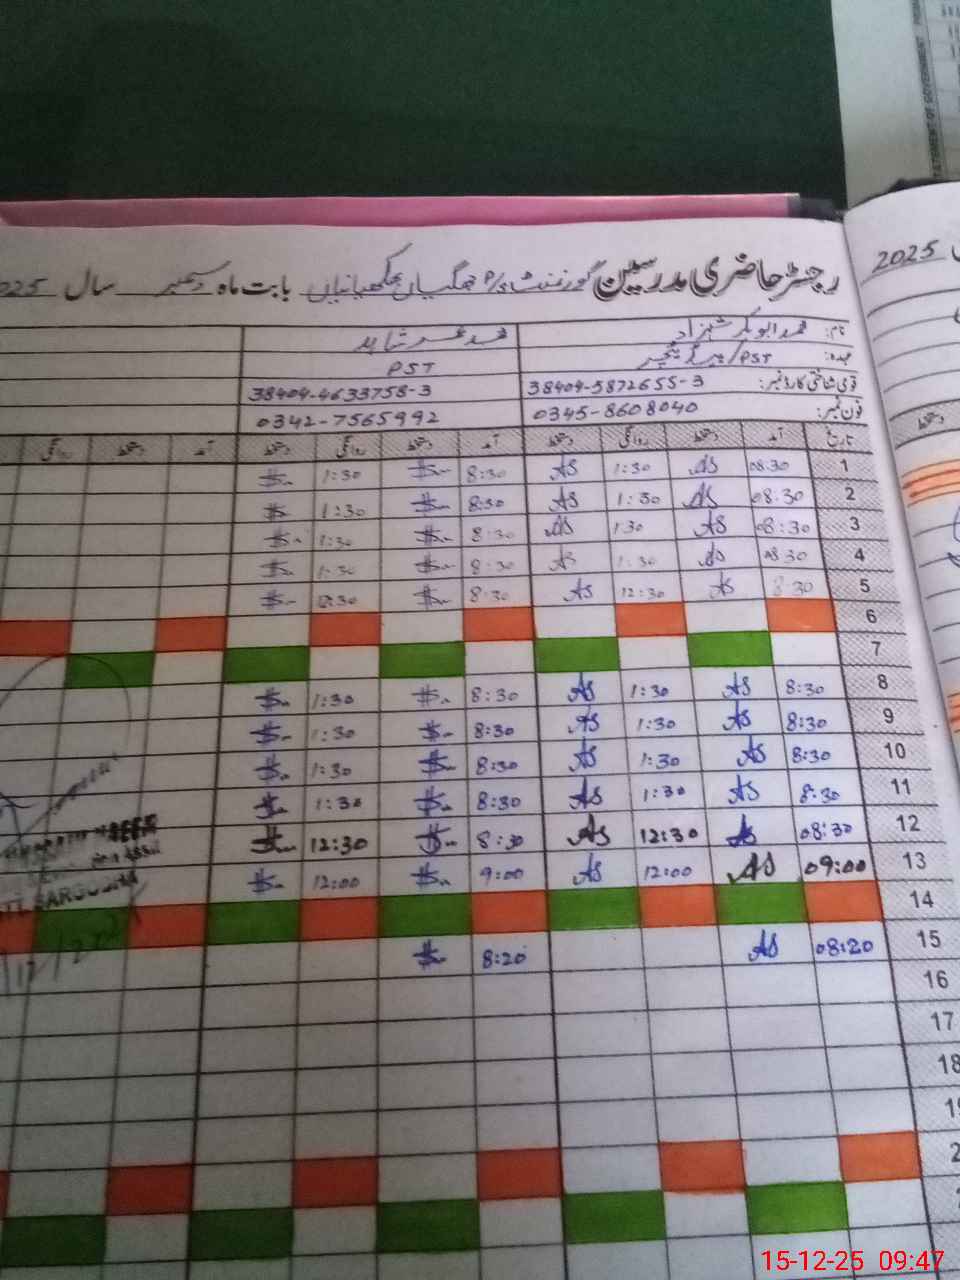 رجسٹر حاضری مدرسین گورنمنٹ پرائمری بابت ماہ دسمبر سال 2025
2025
نام: محمد ابوبکر شہزاد محمد عمر شاہد
عہدہ: PST/ہیڈ ٹیچر PST
قومی شناختی کارڈ نمبر: 38404-5872655-3 38404-4633758-3
فون نمبر: 0345-8608040 0342-7565992
تاریخ آمد دستخط روانگی دستخط آمد دستخط روانگی دستخط آمد دستخط روانگی
1 08:30 AS 1:30 AS 8:30 1:30
2 08:30 AS 1:30 AS 8:30 1:30
3 08:30 AS 1:30 AS 8:30 1:30
4 08:30 AS 1:30 AS 8:30 1:30
5 8:30 AS 12:30 AS 8:30 12:30
6
7
8 8:30 AS 1:30 AS 8:30 1:30
9 8:30 AS 1:30 AS 8:30 1:30
10 8:30 AS 1:30 AS 8:30 1:30
11 8:30 AS 1:30 AS 8:30 1:30
12 08:30 AS 12:30 AS 8:30 12:30
13 09:00 AS 12:00 AS 9:00 12:00
14
15 08:20 AS 8:20
16
17
18
15-12-25 09:47